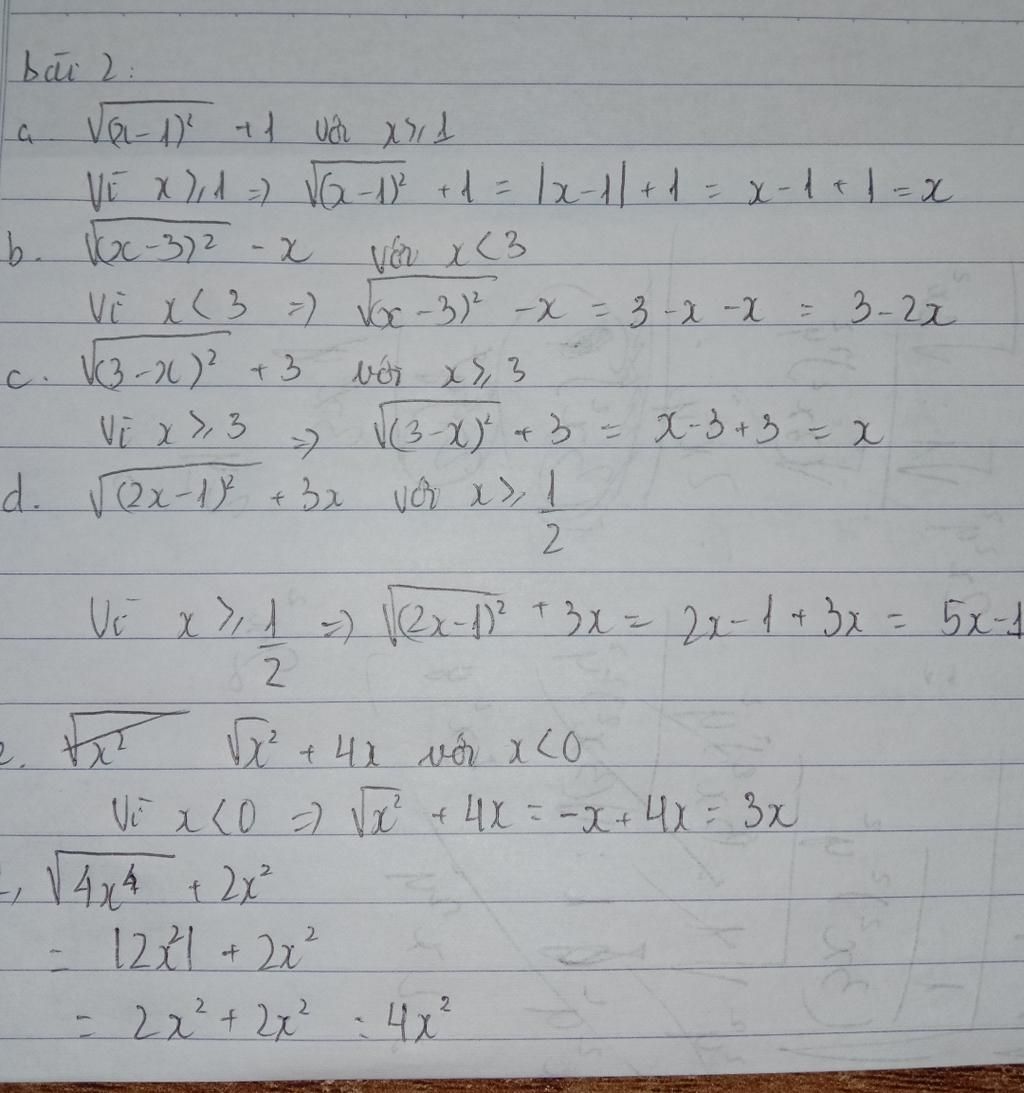 bài 2:
a. √(x-1)² + 1 với x ≥ 1
Vì x ≥ 1 => √(x-1)² + 1 = |x-1| + 1 = x - 1 + 1 = x
b. √(x-3)² - x với x < 3
Vì x < 3 => √(x-3)² - x = 3 - x - x = 3 - 2x
c. √(3-x)² + 3 với x ≥ 3
Vì x ≥ 3 => √(3-x)² + 3 = x - 3 + 3 = x
d. √(2x-1)² + 3x với x ≥ 1/2
Vì x ≥ 1/2 => √(2x-1)² + 3x = 2x - 1 + 3x = 5x - 1
√x² + 4x với x < 0
Vì x < 0 => √x² + 4x = -x + 4x = 3x
√4x⁴ + 2x²
= |2x²| + 2x²
= 2x² + 2x² = 4x²